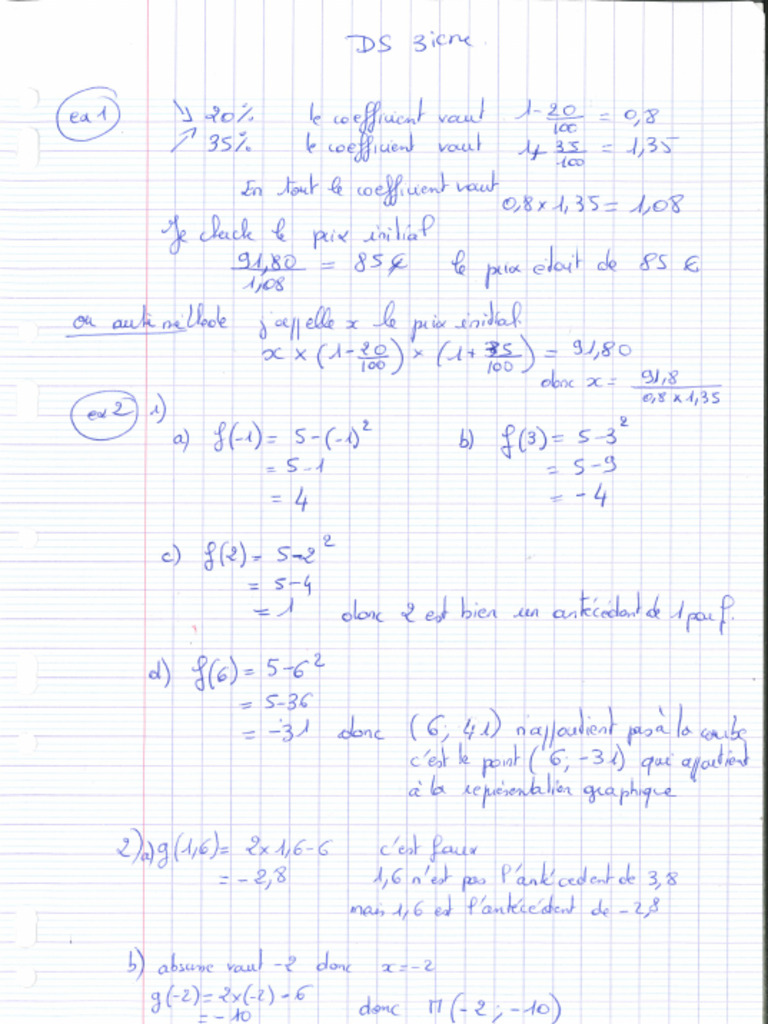 DS 3ième
ex 1 ↘ 20% le coefficient vaut 1-20/100 = 0,8
↗ 35% le coefficient vaut 1+35/100 = 1,35
En tout le coefficient vaut 0,8 x 1,35 = 1,08
Je check le prix initial
91,80/1,08 = 85 € le prix était de 85 €
ou autre méthode j'appelle x le prix initial
x × (1-20/100) × (1+35/100) = 91,80
donc x = 91,8/(0,8 x 1,35)
ex 2 1)
a) f(-1) = 5-(-1)² b) f(3) = 5-3²
= 5-1 = 5-9
= 4 = -4
c) f(2) = 5-2²
= 5-4
= 1 donc 2 est bien un antécédent de 1 par f.
d) f(6) = 5-6²
= 5-36
= -31 donc (6; 41) n'appartient pas à la courbe
c'est le point (6; -31) qui appartient
à la représentation graphique
2) a) g(1,6) = 2x1,6-6 c'est faux
= -2,8 1,6 n'est pas l'antécedent de 3,8
mais 1,6 est l'antécédent de -2,8
b) abscisse vaut -2 donc x=-2
g(-2) = 2x(-2)-6
= -10 donc M(-2; -10)